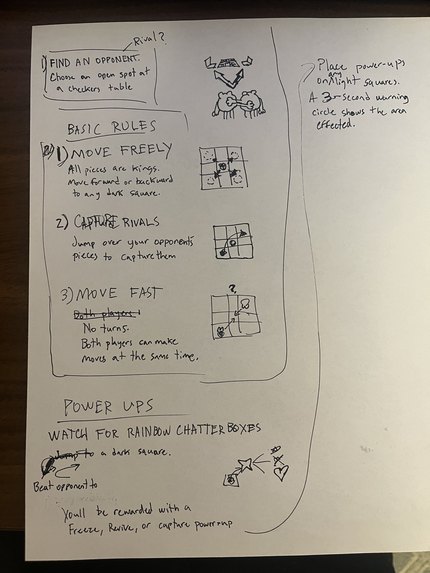 Rival?
1) FIND AN OPPONENT.
Choose an open spot at
a checkers table
BASIC RULES
2) 1) MOVE FREELY
All pieces are kings.
Move forward or backward
to any dark square.
2) CAPTURE RIVALS
Jump over your opponents
pieces to capture them
3) MOVE FAST
?
Both players
No turns.
Both players can make
moves at the same time.
POWER UPS
WATCH FOR RAINBOW CHATTERBOXES
Jump to a dark square.
Beat opponent to
Youll be rewarded with a
Freeze, Revive, or capture power-up
Place power-ups
on any light squares.
A 3-second warning
circle shows the area
effected.